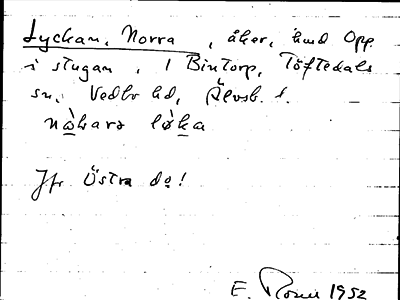 Lyckan, Norra, åker, hmd Opp
i stugan, 1 Bintorp, Töftedals
sn, Vedbo hd, Älvsb. l.
nòḥarə lə̀ka
Jfr Östra do!
E. 1952